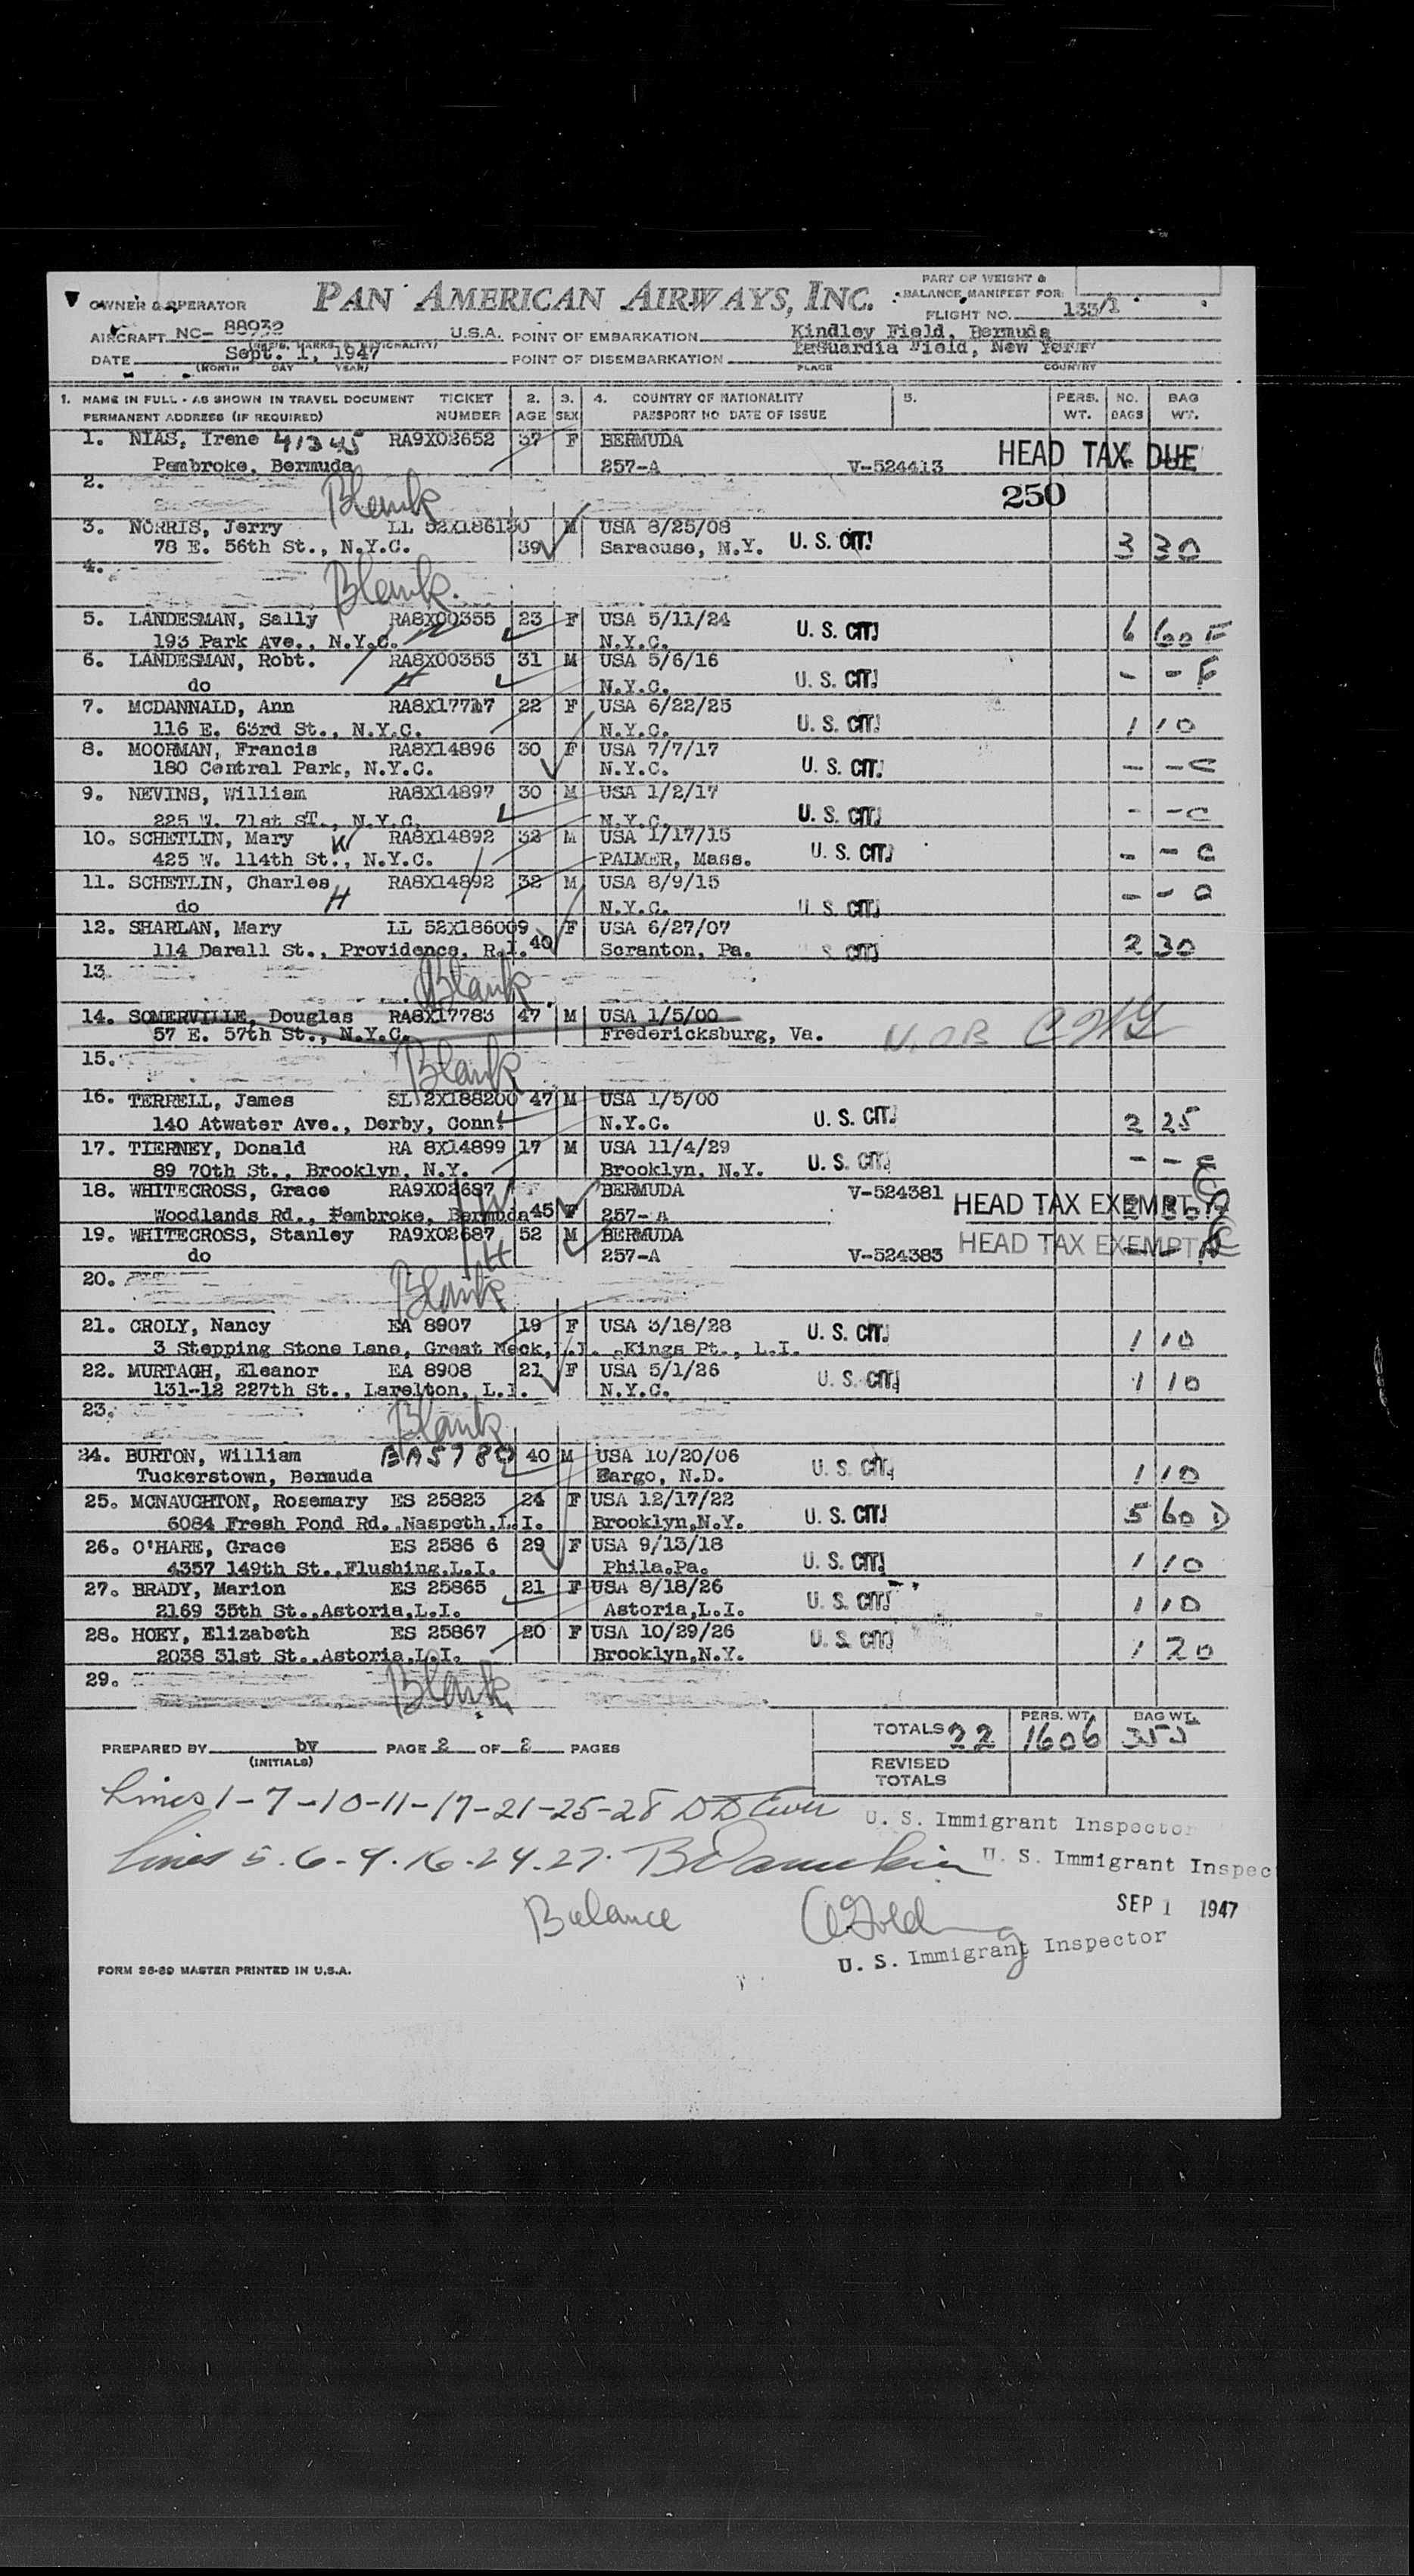 PART OF WEIGHT &
OWNER & OPERATOR PAN AMERICAN AIRWAYS, INC. BALANCE MANIFEST FOR:
FLIGHT NO. 133/1
AIRCRAFT NC- 88932 U.S.A. POINT OF EMBARKATION Kindley Field, Bermuda
DATE Sept. 1, 1947 POINT OF DISEMBARKATION LaGuardia Field, New York
(MONTH DAY YEAR) PLACE COUNTRY
1. NAME IN FULL - AS SHOWN IN TRAVEL DOCUMENT TICKET 2. 3. 4. COUNTRY OF NATIONALITY 5. PERS. NO. BAG
PERMANENT ADDRESS (IF REQUIRED) NUMBER AGE SEX PASSPORT NO DATE OF ISSUE WT. BAGS WT.
1. NIAS, Irene 41345 RA9X02652 37 F BERMUDA HEAD TAX DUE
Pembroke, Bermuda 257-A V-524413
2. Blank 250
3. NORRIS, Jerry LL 52X186130 M USA 8/25/08
78 E. 56th St., N.Y.C. 39 Saracuse, N.Y. U. S. CIT. 3 30
4. Blank.
5. LANDESMAN, Sally RA8X00355 23 F USA 5/11/24 U. S. CIT. 6 60 F
193 Park Ave., N.Y.C. W N.Y.C.
6. LANDESMAN, Robt. RA8X00353 31 M USA 5/6/16 - - F
do H N.Y.C. U. S. CIT.
7. MCDANNALD, Ann RA8X17717 22 F USA 6/22/25
116 E. 63rd St., N.Y.C. N.Y.C. U. S. CIT. 1 10
8. MOORMAN, Francis RA8X14896 30 F USA 7/7/17
180 Central Park, N.Y.C. N.Y.C. U. S. CIT. - - C
9. NEVINS, William RA8X14897 30 M USA 1/2/17
225 W. 71st ST., N.Y.C. N.Y.C. U. S. CIT. - - C
10. SCHETLIN, Mary W RA8X14892 32 M USA 1/17/15
425 W. 114th St., N.Y.C. PALMER, Mass. U. S. CIT. - - C
11. SCHETLIN, Charles H RA8X14892 32 M USA 8/9/15 - - C
do N.Y.C. U. S. CIT.
12. SHARLAN, Mary LL 52X186009 F USA 6/27/07
114 Darall St., Providence, R.I. 40 Scranton, Pa. U. S. CIT. 2 30
13. Blank
14. SOMERVILLE, Douglas RA8X17783 47 M USA 1/5/00
57 E. 57th St., N.Y.C. Fredericksburg, Va. N.O.B
15. Blank
16. TERRELL, James SL 2X188200 47 M USA 1/5/00
140 Atwater Ave., Derby, Conn. N.Y.C. U. S. CIT. 2 25
17. TIERNEY, Donald RA 8X14899 17 M USA 11/4/29
89 70th St., Brooklyn, N.Y. Brooklyn, N.Y. U. S. CIT. - - C
18. WHITECROSS, Grace RA9X02687 W BERMUDA V-524381 HEAD TAX EXEMPT
Woodlands Rd., Pembroke, Bermuda 45 F 257-A
19. WHITECROSS, Stanley RA9X02687 52 M BERMUDA HEAD TAX EXEMPT
do H 257-A V-524383
20. Blank
21. CROLY, Nancy EA 8907 19 F USA 3/18/28 U. S. CIT. 1 10
3 Stepping Stone Lane, Great Neck, Kings Pt., L.I.
22. MURTAGH, Eleanor EA 8908 21 F USA 5/1/26
131-12 227th St., Larelton, L.I. N.Y.C. U. S. CIT. 1 10
23. Blank
24. BURTON, William EA5780 40 M USA 10/20/06
Tuckerstown, Bermuda Fargo, N.D. U. S. CIT. 1 10
25. MCNAUGHTON, Rosemary ES 25823 24 F USA 12/17/22
6084 Fresh Pond Rd.,Naspeth,L.I. Brooklyn,N.Y. U. S. CIT. 5 60 D
26. O'HARE, Grace ES 2586 6 29 F USA 9/13/18
4357 149th St.,Flushing,L.I. Phila.Pa. U. S. CIT. 1 10
27. BRADY, Marion ES 25865 21 F USA 8/18/26
2169 35th St.,Astoria,L.I. Astoria,L.I. U. S. CIT. 1 10
28. HOEY, Elizabeth ES 25867 20 F USA 10/29/26
2038 31st St.,Astoria,L.I. Brooklyn,N.Y. U. S. CIT. 1 20
29. Blank
PERS. WT. BAG WT.
TOTALS 22 1606 355
PREPARED BY bv PAGE 2 OF 2 PAGES
(INITIALS)
REVISED
TOTALS
Lines 1-7-10-11-17-21-25-28 U. S. Immigrant Inspector
Lines 5.6-9.16-24.27. U. S. Immigrant Inspec
SEP 1 1947
Balance
U. S. Immigrant Inspector
FORM 36-89 MASTER PRINTED IN U.S.A.